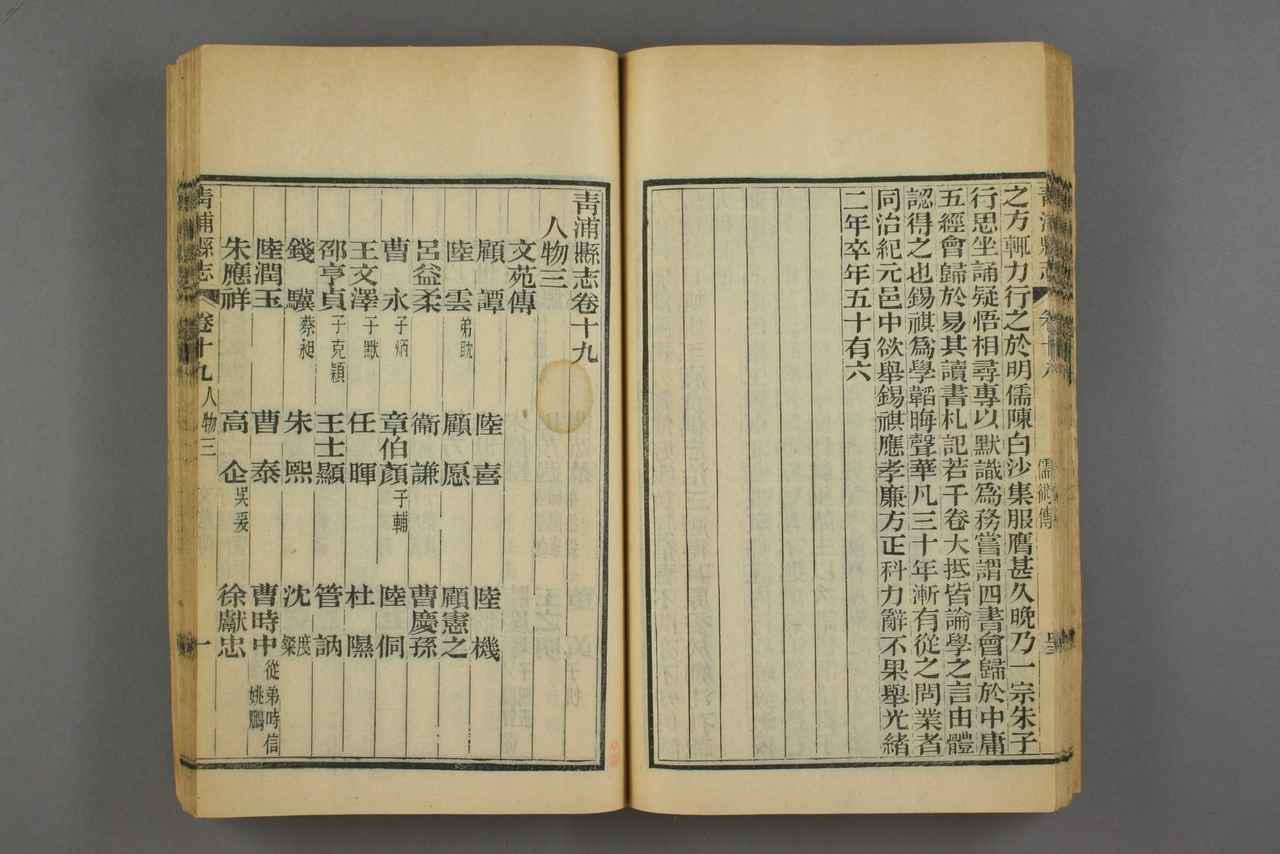 青浦縣志 卷十八 儒術傳
之方輒力行之於明儒陳白沙集服膺甚久晚乃一宗朱子
行思坐誦疑悟相尋專以默識爲務嘗謂四書會歸於中庸
五經會歸於易其讀書札記若干卷大抵皆論學之言由體
認得之也錫祺爲學韜晦聲華凡三十年漸有從之問業者
同治紀元邑中欲舉錫祺應孝廉方正科力辭不果舉光緒
二年卒年五十有六
青浦縣志卷十九
人物三
文苑傳
顧譚 陸喜 陸機
陸雲 弟耽 顧愿 顧憲之
呂益柔 衞謙 曹慶孫
曹永 子炳 章伯顏 子輔 陸侗
王文澤 子默 任暉 杜隰
邵亨貞 子克穎 王士顯 管訥
錢驥 蔡昶 朱熙 沈度 粲
陸潤玉 曹泰 曹時中 從弟時信 姚鵬
朱應祥 高企 吳爰 徐獻忠
青浦縣志 卷十九 人物三 一